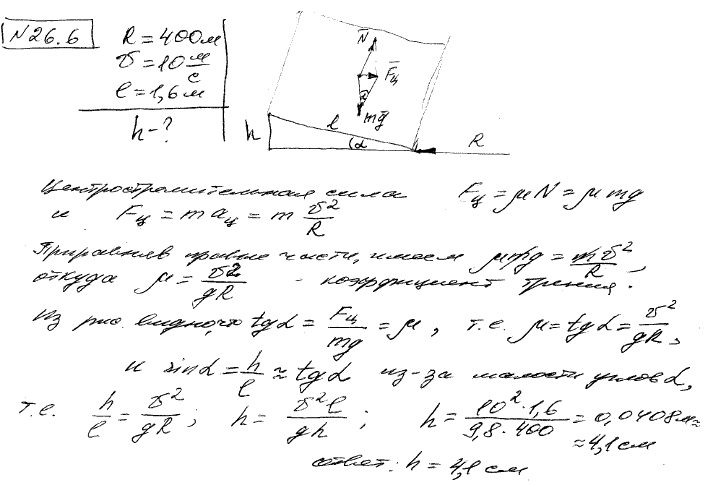 N26.6
R = 400м
v = 10 м/с
l = 1,6м
h - ?
N
Fц
α
mg
h
l
α
R
Центростремительная сила Fц = μN = μmg
и Fц = maц = m v²/R
Приравняв правые части, имеем μmg = m v²/R,
откуда μ = v²/gR - коэффициент трения.
Из рис. видно, что tgα = Fц/mg = μ, т.е. μ = tgα = v²/gR,
и sinα = h/l ≈ tgα из-за малости углов α,
т.е. h/l = v²/gR; h = v²l/gh; h = 10²·1,6/9,8·400 = 0,0408м ≈
≈ 4,1 см
ответ: h = 4,1 см